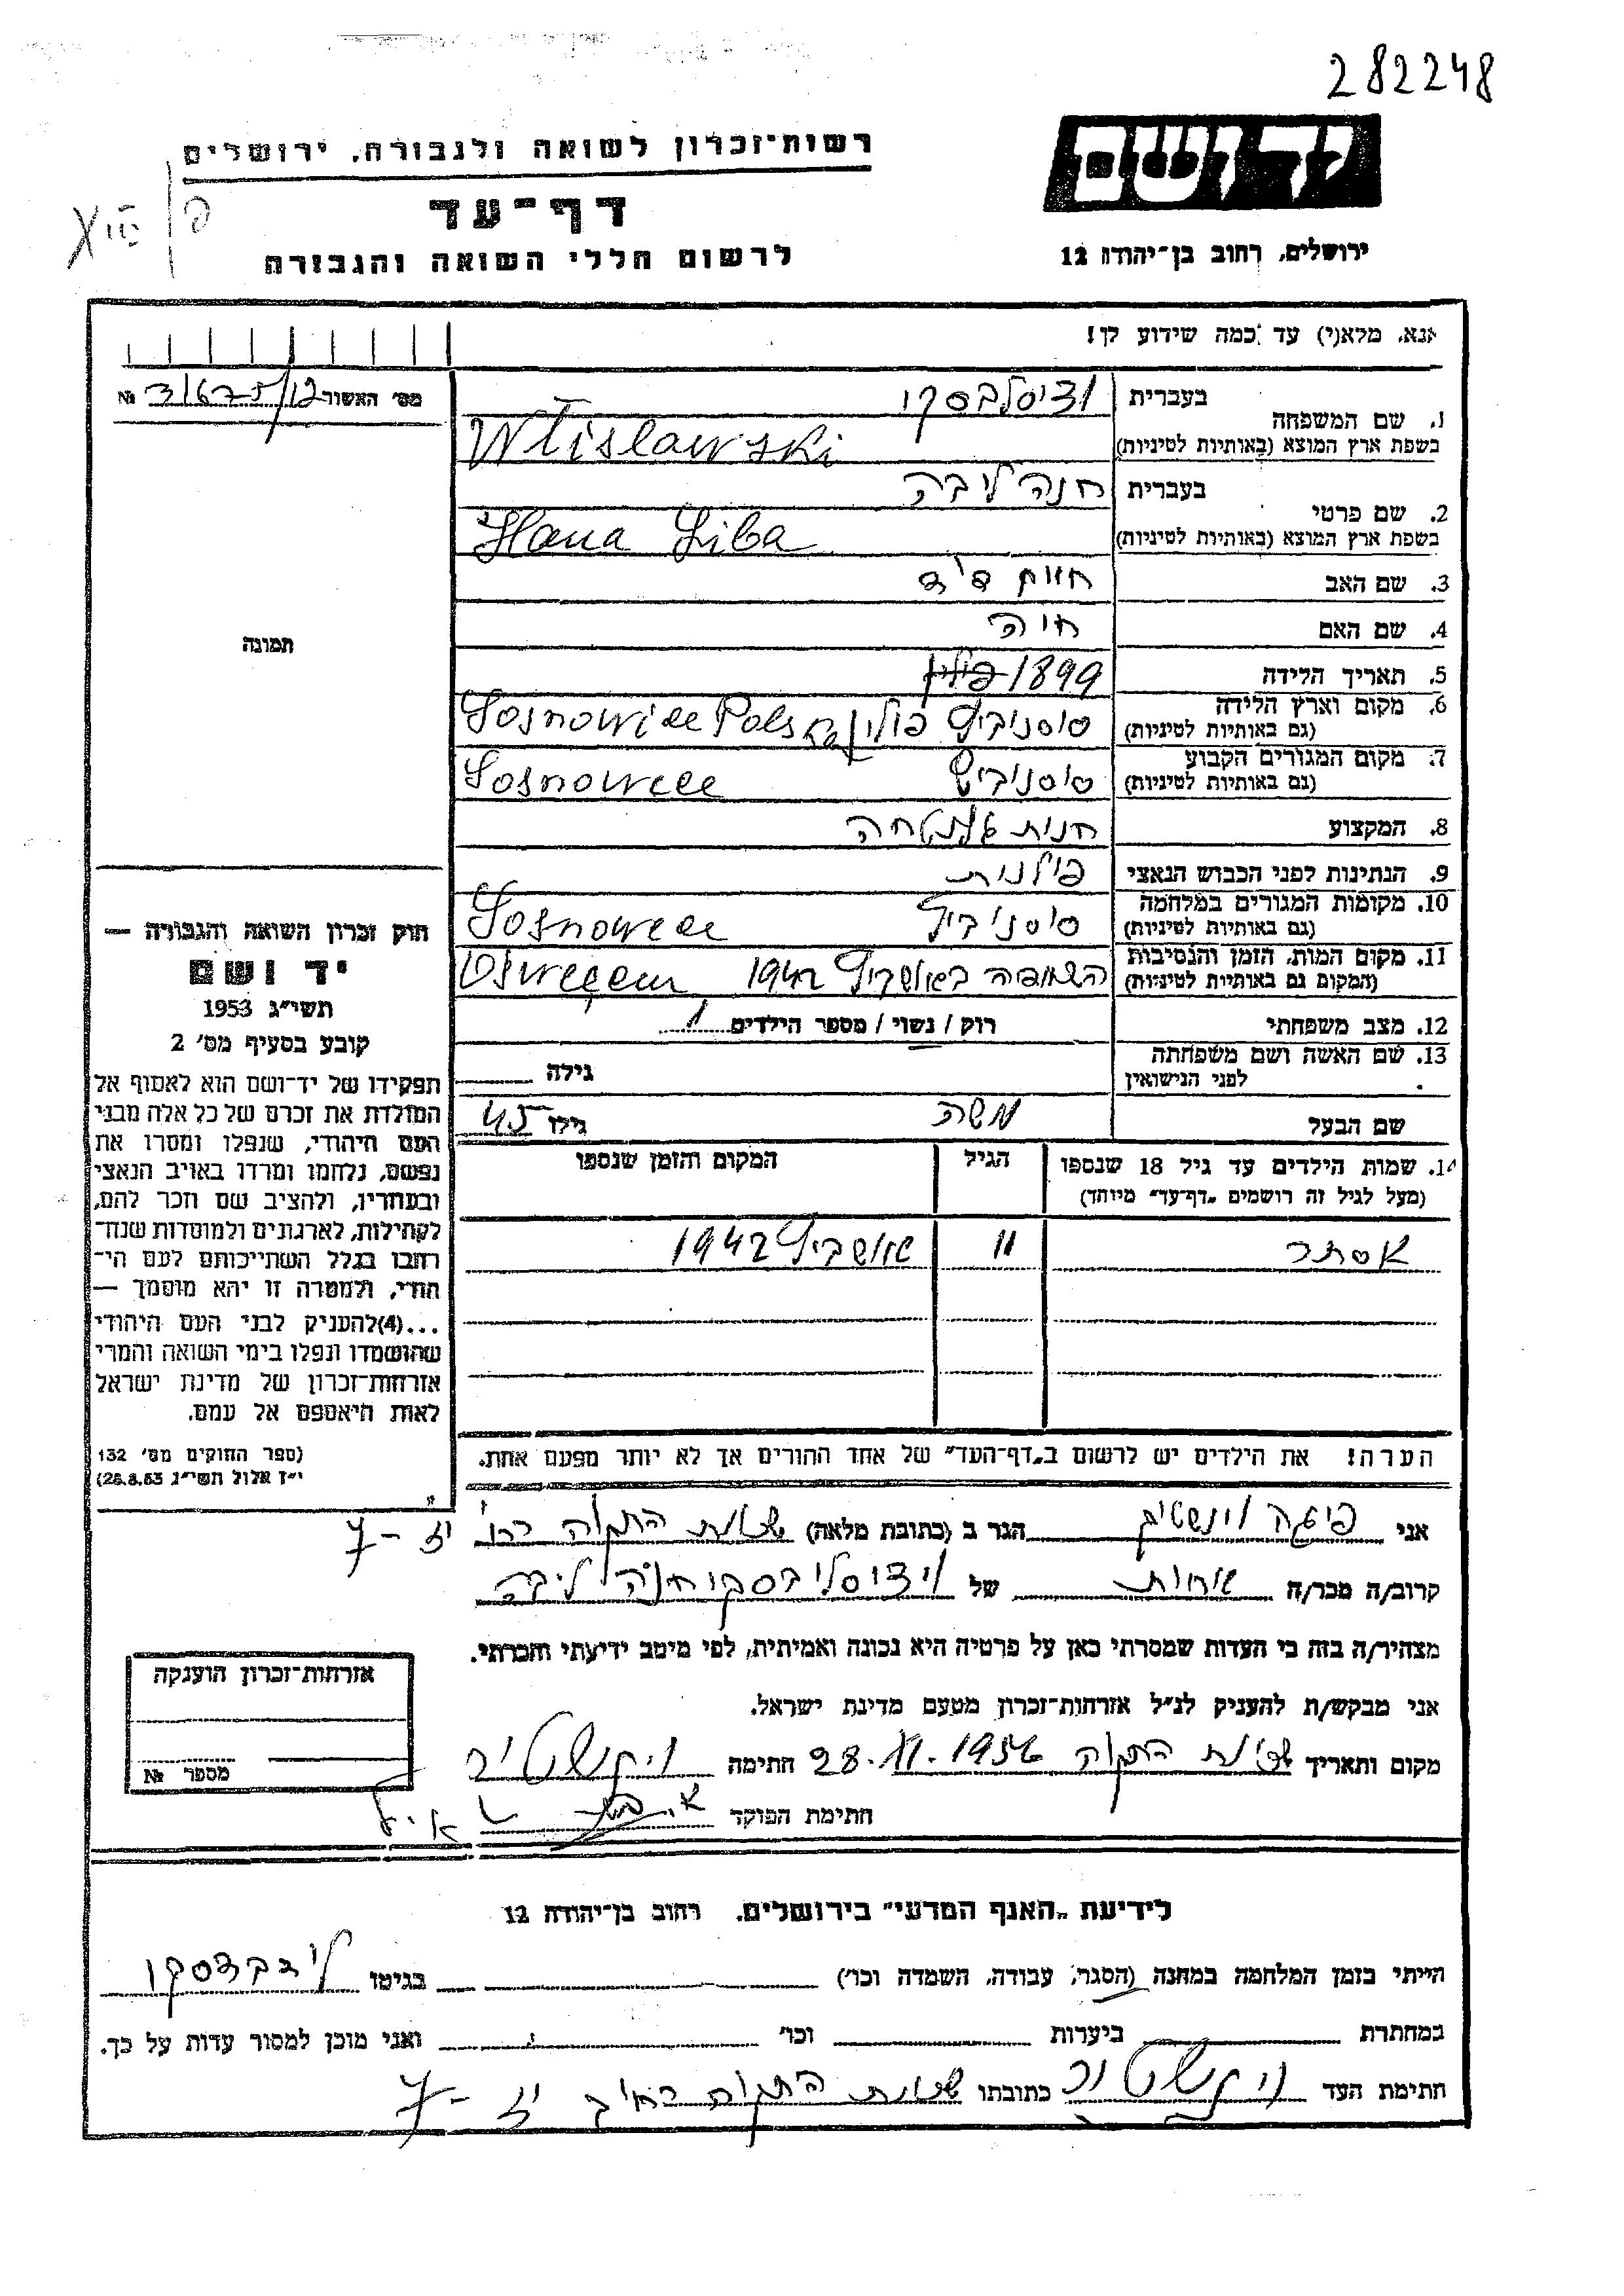 282248
יד ושם
רשות־זכרון לשואה ולגבורה, ירושלים
דף־עד
לרשום חללי השואה והגבורה
ירושלים, רחוב בן־יהודה 12
אנא, מלא(י) עד כמה שידוע לך!
מס׳ האשור №
1. שם המשפחה
בעברית וציסלבסקי
בשפת ארץ המוצא (באותיות לטיניות) Wtislawski
2. שם פרטי
בעברית חנה ליבה
בשפת ארץ המוצא (באותיות לטיניות) Hana Liba
3. שם האב דוד
4. שם האם חיה
5. תאריך הלידה 1899 פולין
6. מקום וארץ הלידה (גם באותיות לטיניות) סוסנוביץ פולין Sosnowice Polska
7. מקום המגורים הקבוע (גם באותיות לטיניות) סוסנוביץ Sosnowcee
8. המקצוע חנות
9. הנתינות לפני הכבוש הנאצי פולנית
10. מקומות המגורים במלחמה (גם באותיות לטיניות) סוסנוביץ Sosnowcee
11. מקום המות, הזמן והנסיבות (המקום גם באותיות לטיניות) באושביץ 1942
12. מצב משפחתי רוק / נשוי / מספר הילדים 1
13. שם האשה ושם משפחתה לפני הנישואין גילה
שם הבעל משה גילו 45
14. שמות הילדים עד גיל 18 שנספו (מעל לגיל זה רושמים „דף־עד״ מיוחד) הגיל המקום והזמן שנספו
אסתר 11 אושביץ 1942
הערה! את הילדים יש לרשום ב„דף־העד״ של אחד ההורים אך לא יותר מפעם אחת.
תמונה
חוק זכרון השואה והגבורה —
יד ושם
תשי״ג 1953
קובע בסעיף מס׳ 2
תפקידו של יד־ושם הוא לאסוף אל
המולדת את זכרם של כל אלה מבני
העם היהודי, שנפלו ומסרו את
נפשם, נלחמו ומרדו באויב הנאצי
ובעוזריו, ולהציב שם וזכר להם,
לקהילות, לארגונים ולמוסדות שנח־
רבו בגלל השתייכותם לעם הי־
הודי, ולמטרה זו יהא מוסמך —
...(4)להעניק לבני העם היהודי
שהושמדו ונפלו בימי השואה והמרי
אזרחות־זכרון של מדינת ישראל
לאות היאספם אל עמם.
(ספר החוקים מס׳ 132
י״ז אלול תשי״ג 28.8.53)
אני וינשטוק הגר ב (כתובת מלאה) שכונת התקוה רח׳ יז - 7
קרוב/ה מכר/ה אחות של וציסליבסקי חנה ליבה
מצהיר/ה בזה כי העדות שמסרתי כאן על פרטיה היא נכונה ואמיתית, לפי מיטב ידיעתי והכרתי.
אני מבקש/ת להעניק לנ״ל אזרחות־זכרון מטעם מדינת ישראל.
מקום ותאריך שכונת התקוה 28.XI.1956 חתימה וינשטוק
חתימת הפוקד
אזרחות־זכרון הוענקה
מספר №
לידיעת „האגף המדעי״ בירושלים, רחוב בן־יהודה 12
הייתי בזמן המלחמה במחנה (הסגר, עבודה, השמדה וכו׳) בגיטו
במחתרת ביערות וכו׳ ואני מוכן למסור עדות על כך.
חתימת העד וינשטוק כתובתו שכונת התקוה רחוב יז - 7